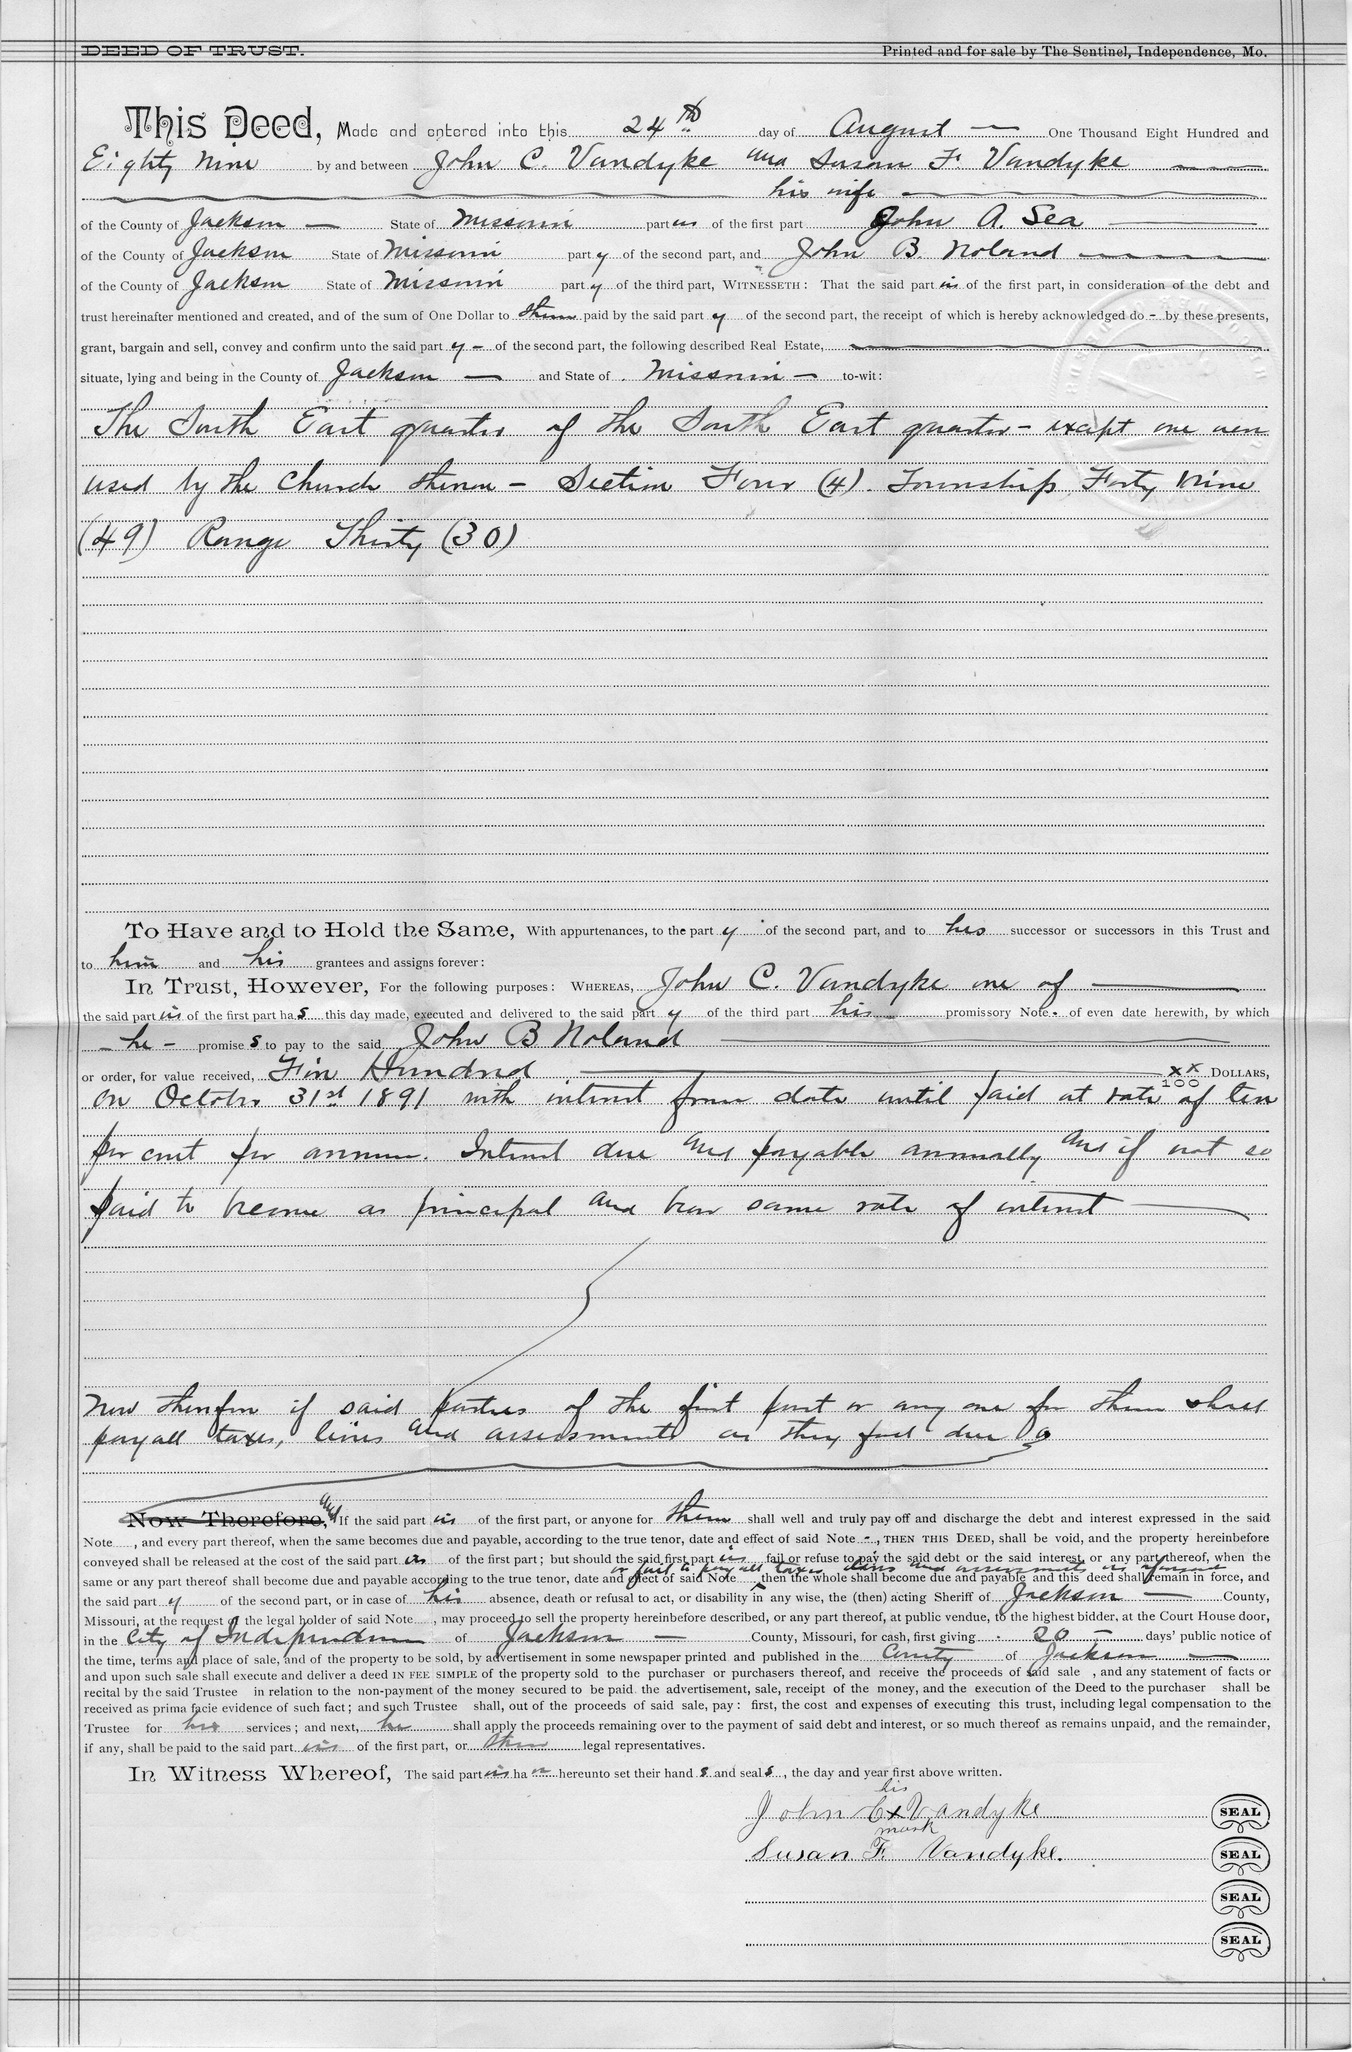 DEED OF TRUST. Printed and for sale by The Sentinel, Independence, Mo.
This Deed, Made and entered into this 24th day of August — One Thousand Eight Hundred and
Eighty Nine by and between John C. Vandyke and Susan F. Vandyke
his wife
of the County of Jackson — State of Missouri parties of the first part John A. Sea
of the County of Jackson State of Missouri party of the second part, and John B. Noland
of the County of Jackson State of Missouri party of the third part, WITNESSETH: That the said parties of the first part, in consideration of the debt and
trust hereinafter mentioned and created, and of the sum of One Dollar to them paid by the said party of the second part, the receipt of which is hereby acknowledged do - by these presents,
grant, bargain and sell, convey and confirm unto the said party - of the second part, the following described Real Estate,
situate, lying and being in the County of Jackson — and State of Missouri — to-wit:
The South East quarter of the South East quarter - except one acre
used by the Church thereon - Section Four (4). Township Forty Nine
(49) Range Thirty (30)
To Have and to Hold the Same, With appurtenances, to the party of the second part, and to his successor or successors in this Trust and
to him and his grantees and assigns forever:
In Trust, However, For the following purposes: WHEREAS, John C. Vandyke one of
the said parties of the first part has this day made, executed and delivered to the said party of the third part his promissory Note - of even date herewith, by which
- he - promises to pay to the said John B Noland
or order, for value received, Five Hundred xx/100 DOLLARS,
on October 31st 1891 with interest from date until paid at rate of ten
per cent per annum. Interest due and payable annually and if not so
paid to become as principal and bear same rate of interest
Now therefore if said parties of the first part or any one for them shall
pay all taxes, liens and assessments as they fall due
Now Therefore, and If the said parties of the first part, or anyone for them shall well and truly pay off and discharge the debt and interest expressed in the said
Note , and every part thereof, when the same becomes due and payable, according to the true tenor, date and effect of said Note -, THEN THIS DEED, shall be void, and the property hereinbefore
conveyed shall be released at the cost of the said parties of the first part; but should the said first parties fail or refuse to pay the said debt or the said interest or any part thereof, when the
or fail to pay all taxes liens and assessments
same or any part thereof shall become due and payable according to the true tenor, date and effect of said Note , then the whole shall become due and payable and this deed shall remain in force, and
the said party of the second part, or in case of his absence, death or refusal to act, or disability in any wise, the (then) acting Sheriff of Jackson — County,
Missouri, at the request of the legal holder of said Note , may proceed to sell the property hereinbefore described, or any part thereof, at public vendue, to the highest bidder, at the Court House door,
in the City of Independence of Jackson — County, Missouri, for cash, first giving 20 — days' public notice of
the time, terms and place of sale, and of the property to be sold, by advertisement in some newspaper printed and published in the County of Jackson —
and upon such sale shall execute and deliver a deed IN FEE SIMPLE of the property sold to the purchaser or purchasers thereof, and receive the proceeds of said sale , and any statement of facts or
recital by the said Trustee in relation to the non-payment of the money secured to be paid. the advertisement, sale, receipt of the money, and the execution of the Deed to the purchaser shall be
received as prima facie evidence of such fact; and such Trustee shall, out of the proceeds of said sale, pay: first, the cost and expenses of executing this trust, including legal compensation to the
Trustee for his services; and next, he shall apply the proceeds remaining over to the payment of said debt and interest, or so much thereof as remains unpaid, and the remainder,
if any, shall be paid to the said parties of the first part, or their legal representatives.
In Witness Whereof, The said parties have hereunto set their hands and seals, the day and year first above written.
his
John C x Vandyke SEAL
mark
Susan F. Vandyke. SEAL
SEAL
SEAL